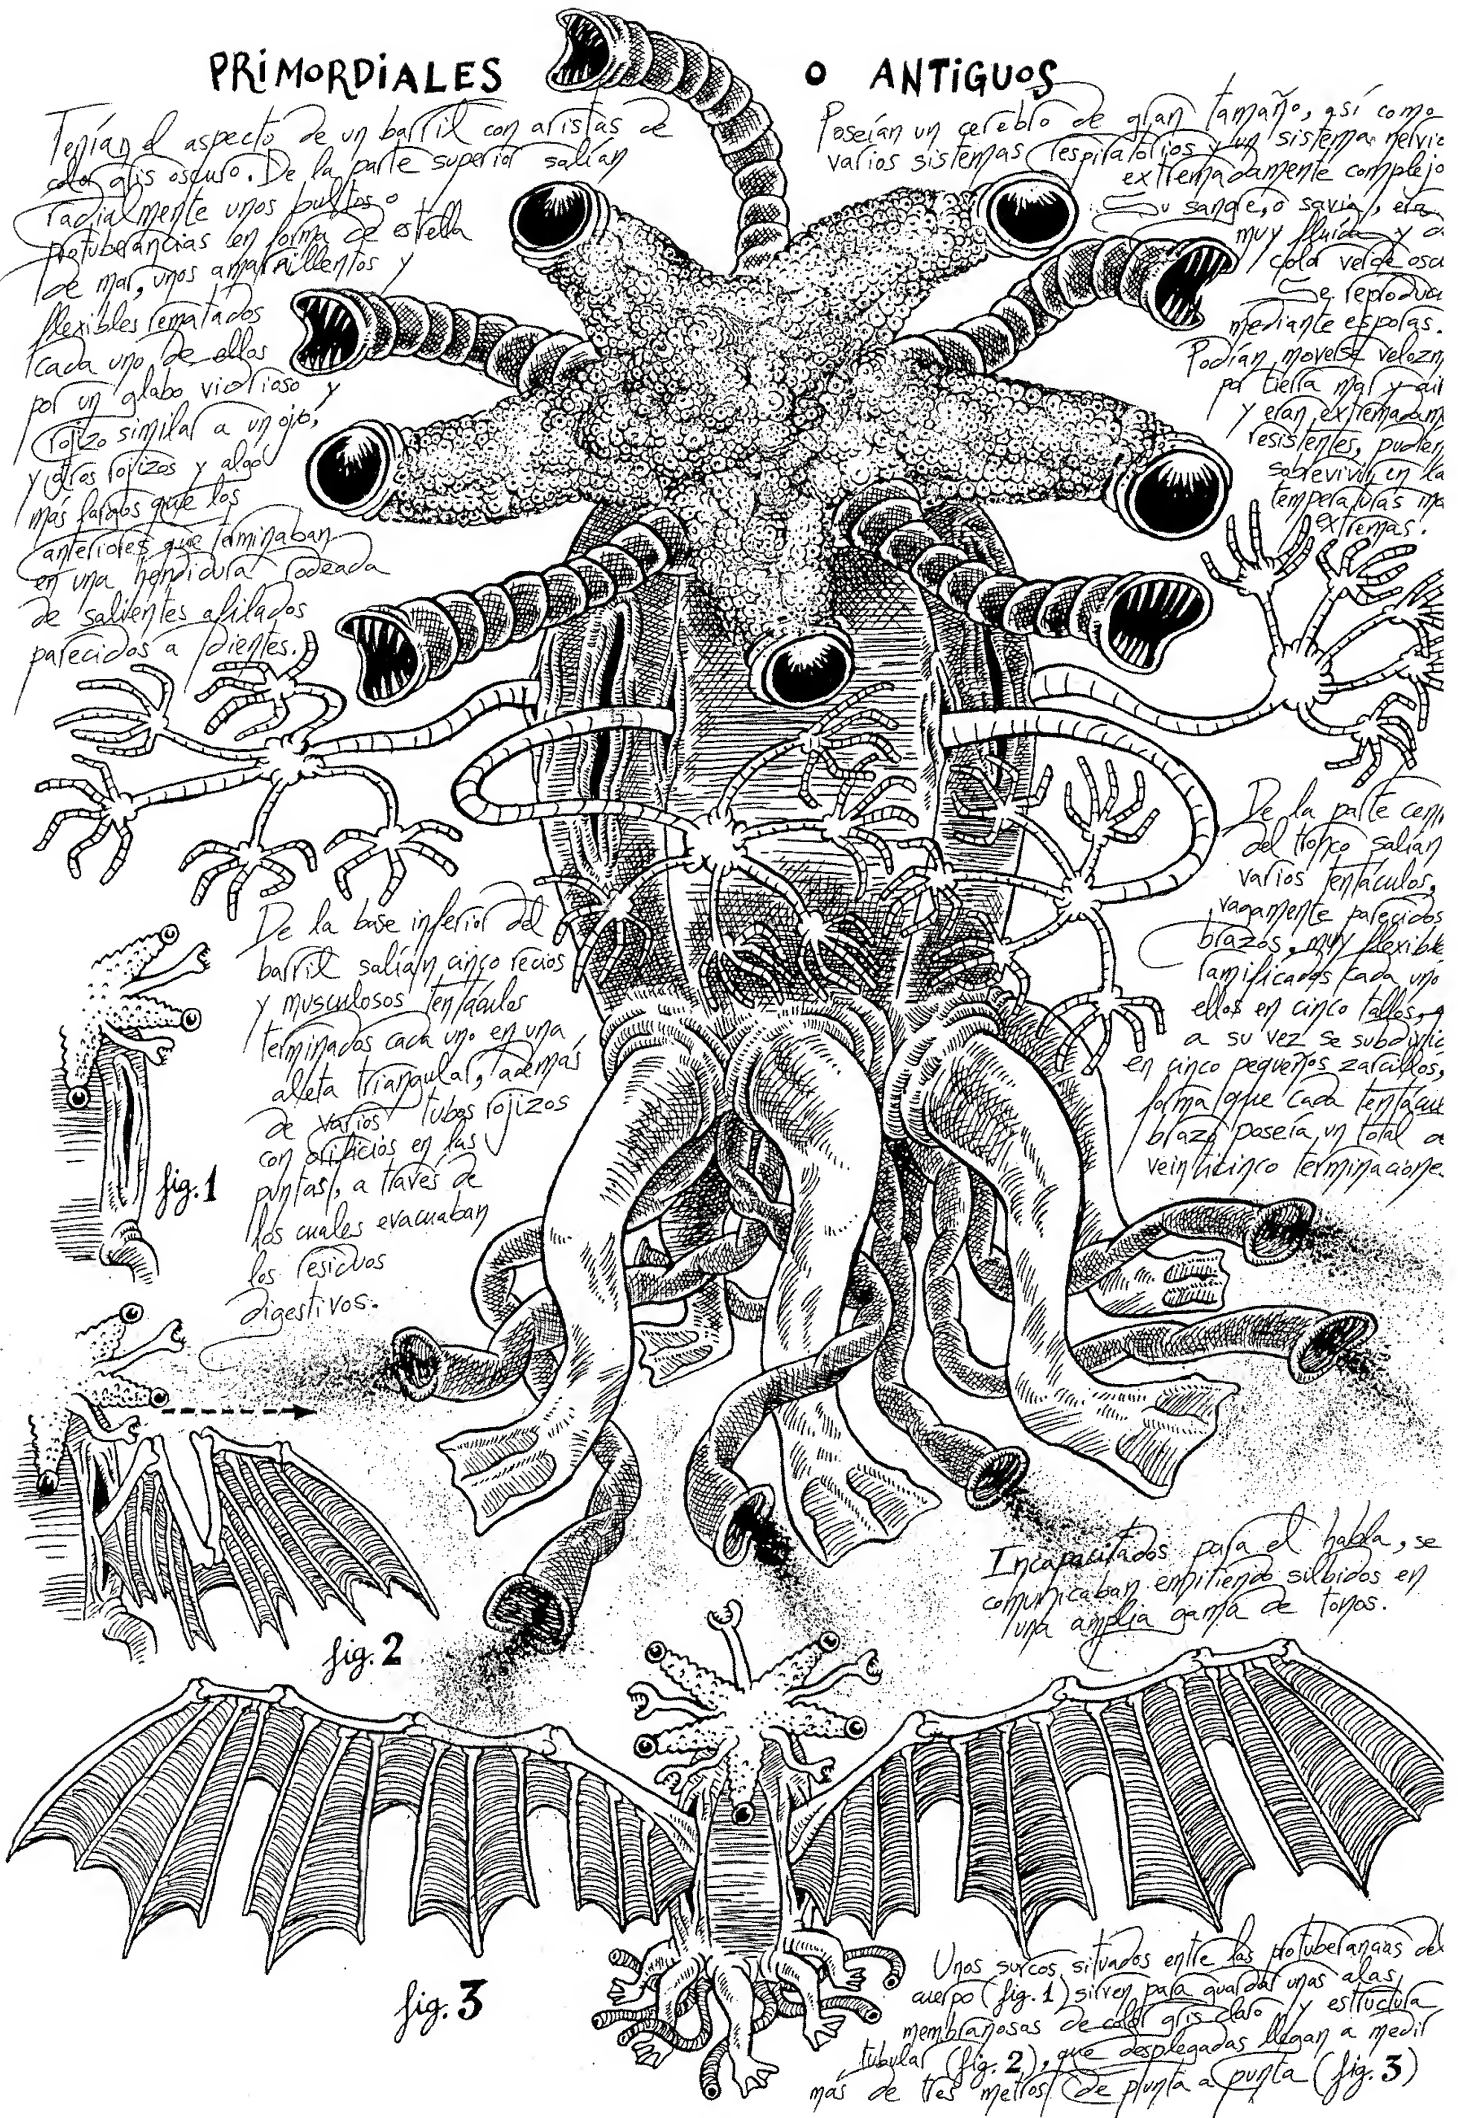 PRIMORDIALES O ANTIGUOS
Tenían el aspecto de un barril con aristas de
color gris oscuro. De la parte superior salían
radialmente unos bultos o
protuberancias en forma de estrella
de mar, unos amarillentos y
flexibles rematados
cada uno de ellos
por un globo vidrioso y
rojizo similar a un ojo,
y otros rojizos y algo
más largos que los
anteriores que terminaban
en una hendidura rodeada
de salientes afilados
parecidos a dientes.
Poseían un cerebro de gran tamaño, así como
varios sistemas respiratorios y un sistema nervio
extremadamente complejo
Su sangre, o savia, era
muy fluida y d
color verde oscu
Se reproduc
mediante esporas.
Podían moverse velozm
por tierra mar y air
y eran extremadam
resistentes, pudien
sobrevivir en la
temperaturas ma
extremas.
De la parte cent
del tronco salían
varios tentáculos,
vagamente parecidos
brazos, muy flexible
ramificados cada uno
ellos en cinco tallos, q
a su vez se subdivid
en cinco pequeños zarcillos,
forma que cada tentácu
brazo poseía un total d
veinticinco terminacione
De la base inferior del
barril salían cinco recios
y musculosos tentáculos
terminados cada uno en una
aleta triangular, además
de varios tubos rojizos
con orificios en las
puntas, a través de
los cuales evacuaban
los residuos
digestivos.
fig. 1
fig. 2
Incapacitados para el habla, se
comunicaban emitiendo silbidos en
una amplia gama de tonos.
fig. 3
Unos surcos situados entre las protuberancias del
cuerpo (fig. 1) sirven para guardar unas alas
membranosas de color gris claro y estructura
tubular (fig. 2), que desplegadas llegan a medir
más de tres metros de punta a punta (fig. 3)